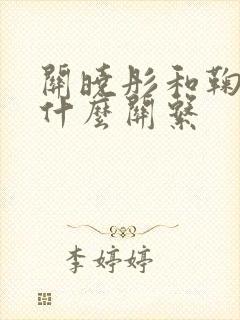 關曉彤和鞠
什麼關繫
李婷婷